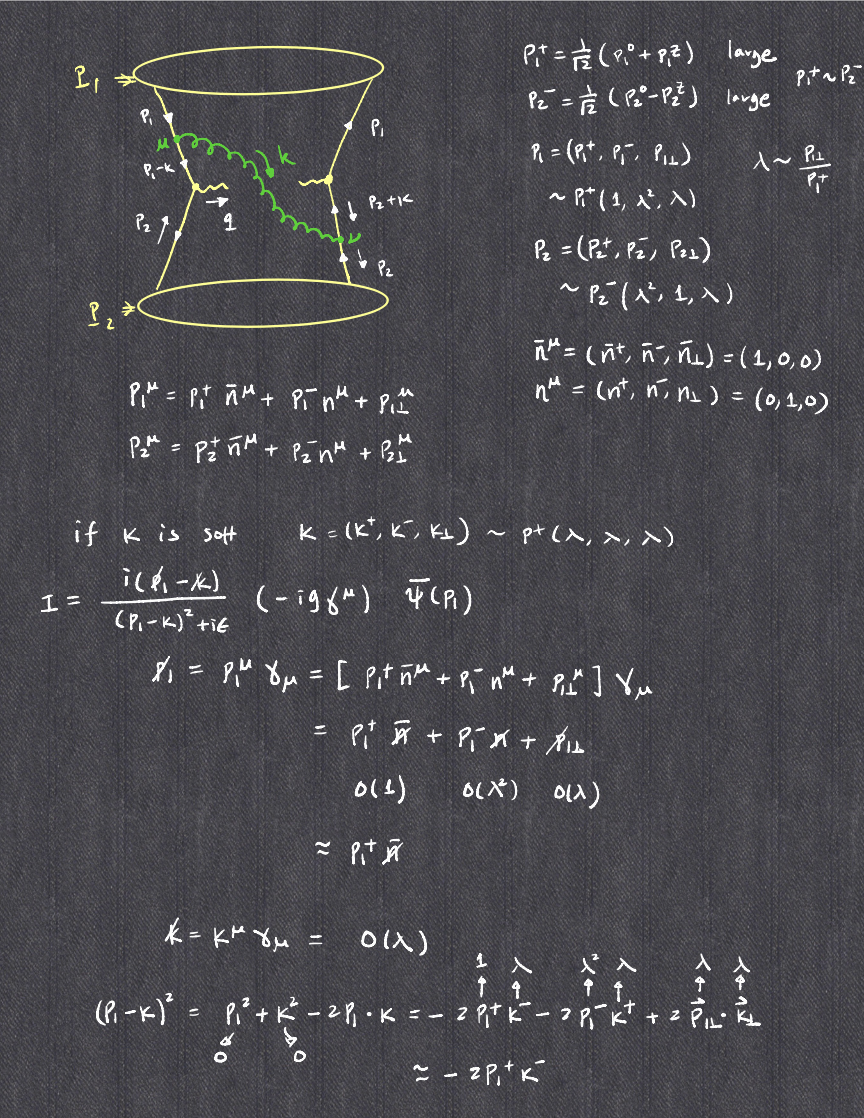 P₁ ⇒
P₁
μ
k
P₁
P₁-k
P₂+k
P₂
q
ν
P₂
P₂ ⇒
P₁⁺ = 1/√2 (P₁⁰ + P₁ᶻ) large
P₁⁺ ~ P₂⁻
P₂⁻ = 1/√2 (P₂⁰ - P₂ᶻ) large
P₁ = (P₁⁺, P₁⁻, P₁⊥)
λ ~ P₁⊥/P₁⁺
~ P₁⁺ (1, λ², λ)
P₂ = (P₂⁺, P₂⁻, P₂⊥)
~ P₂⁻ (λ², 1, λ)
n̄^μ = (n̄⁺, n̄⁻, n̄⊥) = (1, 0, 0)
n^μ = (n⁺, n⁻, n⊥) = (0, 1, 0)
P₁^μ = P₁⁺ n̄^μ + P₁⁻ n^μ + P₁⊥^μ
P₂^μ = P₂⁺ n̄^μ + P₂⁻ n^μ + P₂⊥^μ
if k is soft k = (k⁺, k⁻, k⊥) ~ P⁺ (λ, λ, λ)
I = i(p̸₁ - k̸)/((P₁-k)² + iϵ) (-igγ^μ) ψ̄(P₁)
p̸₁ = P₁^μ γ_μ = [ P₁⁺ n̄^μ + P₁⁻ n^μ + P₁⊥^μ ] γ_μ
= P₁⁺ n̸̄ + P₁⁻ n̸ + p̸₁⊥
O(1) O(λ²) O(λ)
≈ P₁⁺ n̸̄
k̸ = k^μ γ_μ = O(λ)
1 λ λ² λ λ λ
(P₁-k)² = P₁² + k² - 2P₁·k = - 2 P₁⁺ k⁻ - 2 P₁⁻ k⁺ + 2 P⃗₁⊥·k⃗⊥
0 0
≈ - 2P₁⁺ k⁻